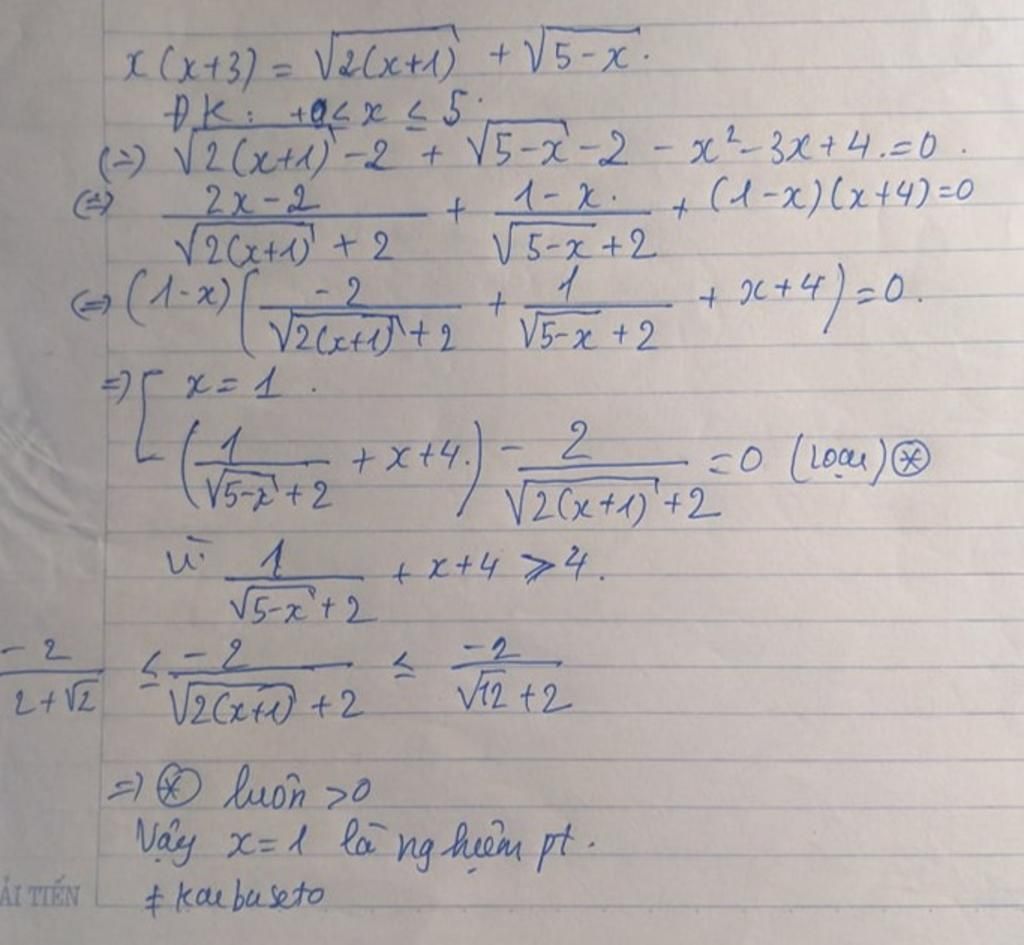 x(x+3) = √(2(x+1)) + √(5-x).
ĐK: +0 ≤ x ≤ 5.
(=) √(2(x+1)) - 2 + √(5-x) - 2 - x² - 3x + 4. = 0.
(=) (2x-2)/(√(2(x+1)) + 2) + (1-x.)/(√(5-x) + 2) + (1-x)(x+4) = 0
(=) (1-x)((-2)/(√(2(x+1)) + 2) + 1/(√(5-x) + 2) + x+4) = 0.
=) [ x = 1.
(1/(√(5-x) + 2) + x+4.) - 2/(√(2(x+1)) + 2) = 0 (loại) ⊛
Vì 1/(√(5-x) + 2) + x+4 ⩾ 4.
(-2)/(2+√2) ≤ (-2)/(√(2(x+1)) + 2) ≤ (-2)/(√12 + 2)
=) ⊛ luôn > 0
Vậy x = 1 là nghiệm pt.
# kaebuseto
ẢI TIẾN